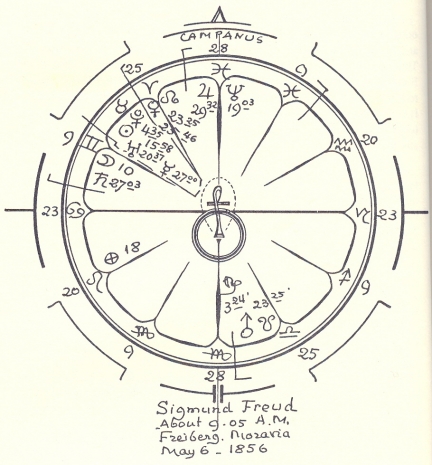 CAMPANUS
28
♓
25
♈
☊
♃
29 32
♆
19 03
♓
9
♉
☉
♀
23 25
4 35
46
15 58
♅ 20 37
☿ 27 00
♒
20
9
♊
☽ 10
♄ 27 03
23
♋
♑
23
⊕ 18
♌
20
♐
9
3 24'
23 25'
♂
☋
♎
25
♍
9
♏
28
Sigmund Freud
About 9.05 A.M.
Freiberg, Moravia
May 6 - 1856